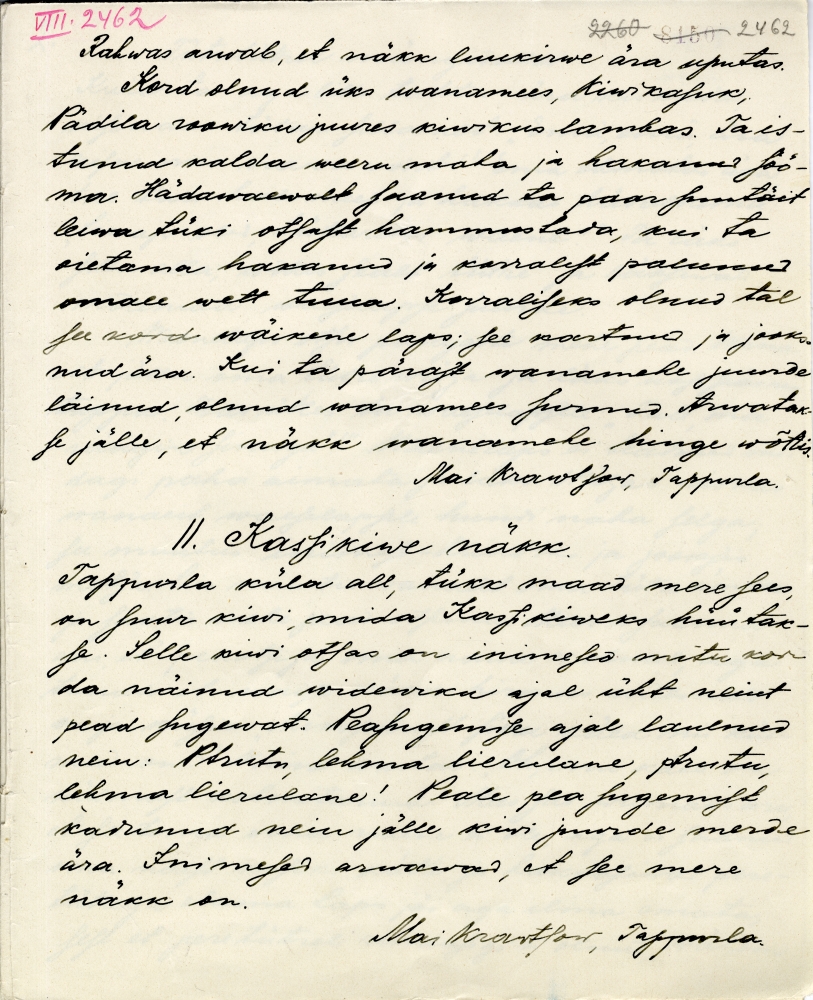 VIII. 2462
2260 8150 2462
Rahwas arwab, et näkk luukirwe ära uputas.
Kord olnud üks wanamees, Kiwikasuk,
Pädila roowiku juures kiwikus lambas. Ta is-
tunud kalda weeru maha ja hakanud söö-
ma. Hädawaewalt saanud ta paar suutäit
leiwa tüki otsast hammustada, kui ta
oietama hakanud ja korralist palunud
omale wett tuua. Korraliseks olnud tal
see kord wäikene laps; see kartnud ja jooks-
nud ära. Kui ta pärast wanamehe juurde
läinud, olnud wanamees surnud. Arwatak-
se jälle, et näkk wanamehe hinge wõttis.
Mai Krawtsow, Tappurla.
11. Kassikiwe näkk.
Tappurla küla all, tükk maad mere sees,
on suur kiwi, mida Kassikiweks hüütak-
se. Selle kiwi otsas on inimesed mitu kor-
da näinud widewiku ajal üht neiut
pead sugewat. Peasugemise ajal laulnud
neiu: Ptrutu, lehma lierulane, ptrutu,
lehma lierulane! Peale pea sugemist
kadunud neiu jälle kiwi juurde merde
ära. Inimesed arwawad, et see mere
näkk on.
Mai Krawtsow, Tappurla.